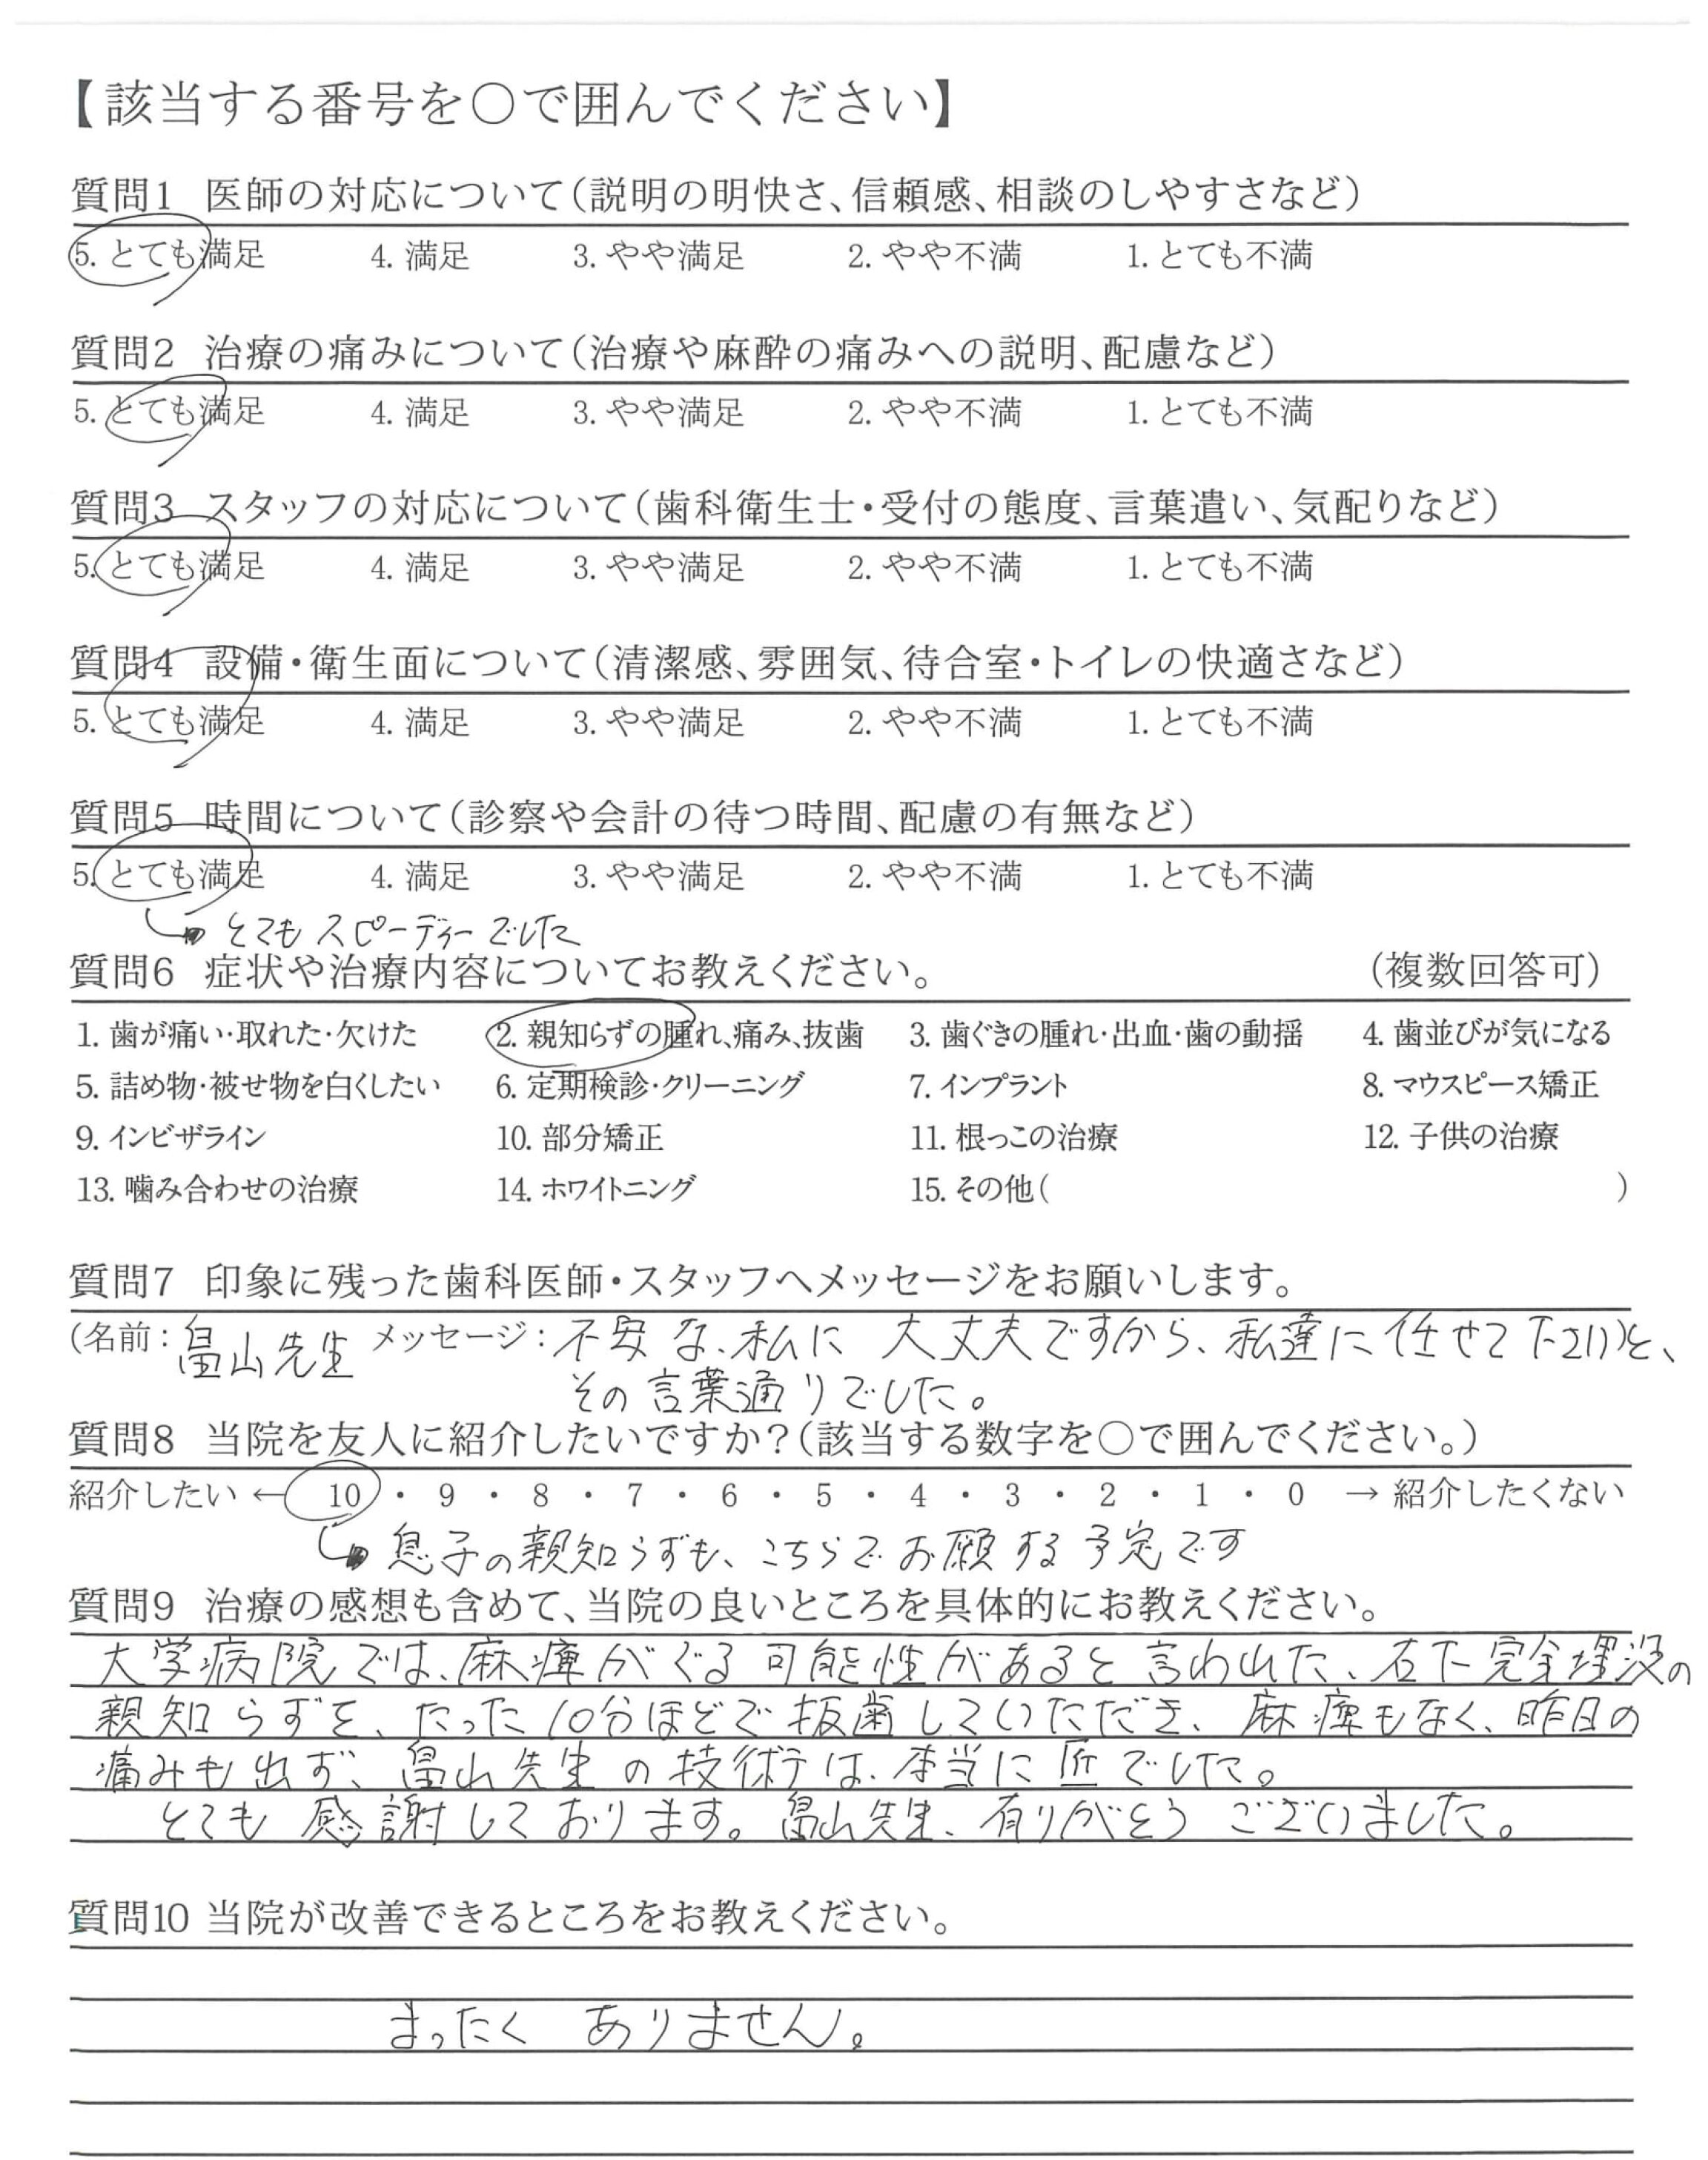 【該当する番号を○で囲んでください】
質問1 医師の対応について(説明の明快さ、信頼感、相談のしやすさなど)
5. とても満足 4. 満足 3. やや満足 2. やや不満 1. とても不満
質問2 治療の痛みについて(治療や麻酔の痛みへの説明、配慮など)
5. とても満足 4. 満足 3. やや満足 2. やや不満 1. とても不満
質問3 スタッフの対応について(歯科衛生士・受付の態度、言葉遣い、気配りなど)
5. とても満足 4. 満足 3. やや満足 2. やや不満 1. とても不満
質問4 設備・衛生面について(清潔感、雰囲気、待合室・トイレの快適さなど)
5. とても満足 4. 満足 3. やや満足 2. やや不満 1. とても不満
質問5 時間について(診察や会計の待つ時間、配慮の有無など)
5. とても満足 4. 満足 3. やや満足 2. やや不満 1. とても不満
とてもスピーディーでした
質問6 症状や治療内容についてお教えください。 (複数回答可)
1. 歯が痛い・取れた・欠けた 2. 親知らずの腫れ、痛み、抜歯 3. 歯ぐきの腫れ・出血・歯の動揺 4. 歯並びが気になる
5. 詰め物・被せ物を白くしたい 6. 定期検診・クリーニング 7. インプラント 8. マウスピース矯正
9. インビザライン 10. 部分矯正 11. 根っこの治療 12. 子供の治療
13. 噛み合わせの治療 14. ホワイトニング 15. その他( )
質問7 印象に残った歯科医師・スタッフへメッセージをお願いします。
(名前:畠山先生 メッセージ:不安な、私に 大丈夫ですから、私達に任せて下さい)と、
その言葉通りでした。
質問8 当院を友人に紹介したいですか?(該当する数字を○で囲んでください。)
紹介したい ← 10 ・ 9 ・ 8 ・ 7 ・ 6 ・ 5 ・ 4 ・ 3 ・ 2 ・ 1 ・ 0 → 紹介したくない
息子の親知らずも、こちらでお願する予定です
質問9 治療の感想も含めて、当院の良いところを具体的にお教えください。
大学病院では、麻痺がでる可能性があると言われた、右下完全埋没の
親知らずを、たった10分ほどで抜歯していただき、麻痺もなく、昨日の
痛みも出ず、畠山先生の技術は、本当に匠でした。
とても感謝しております。畠山先生、有りがとうございました。
質問10 当院が改善できるところをお教えください。
まったく ありません。